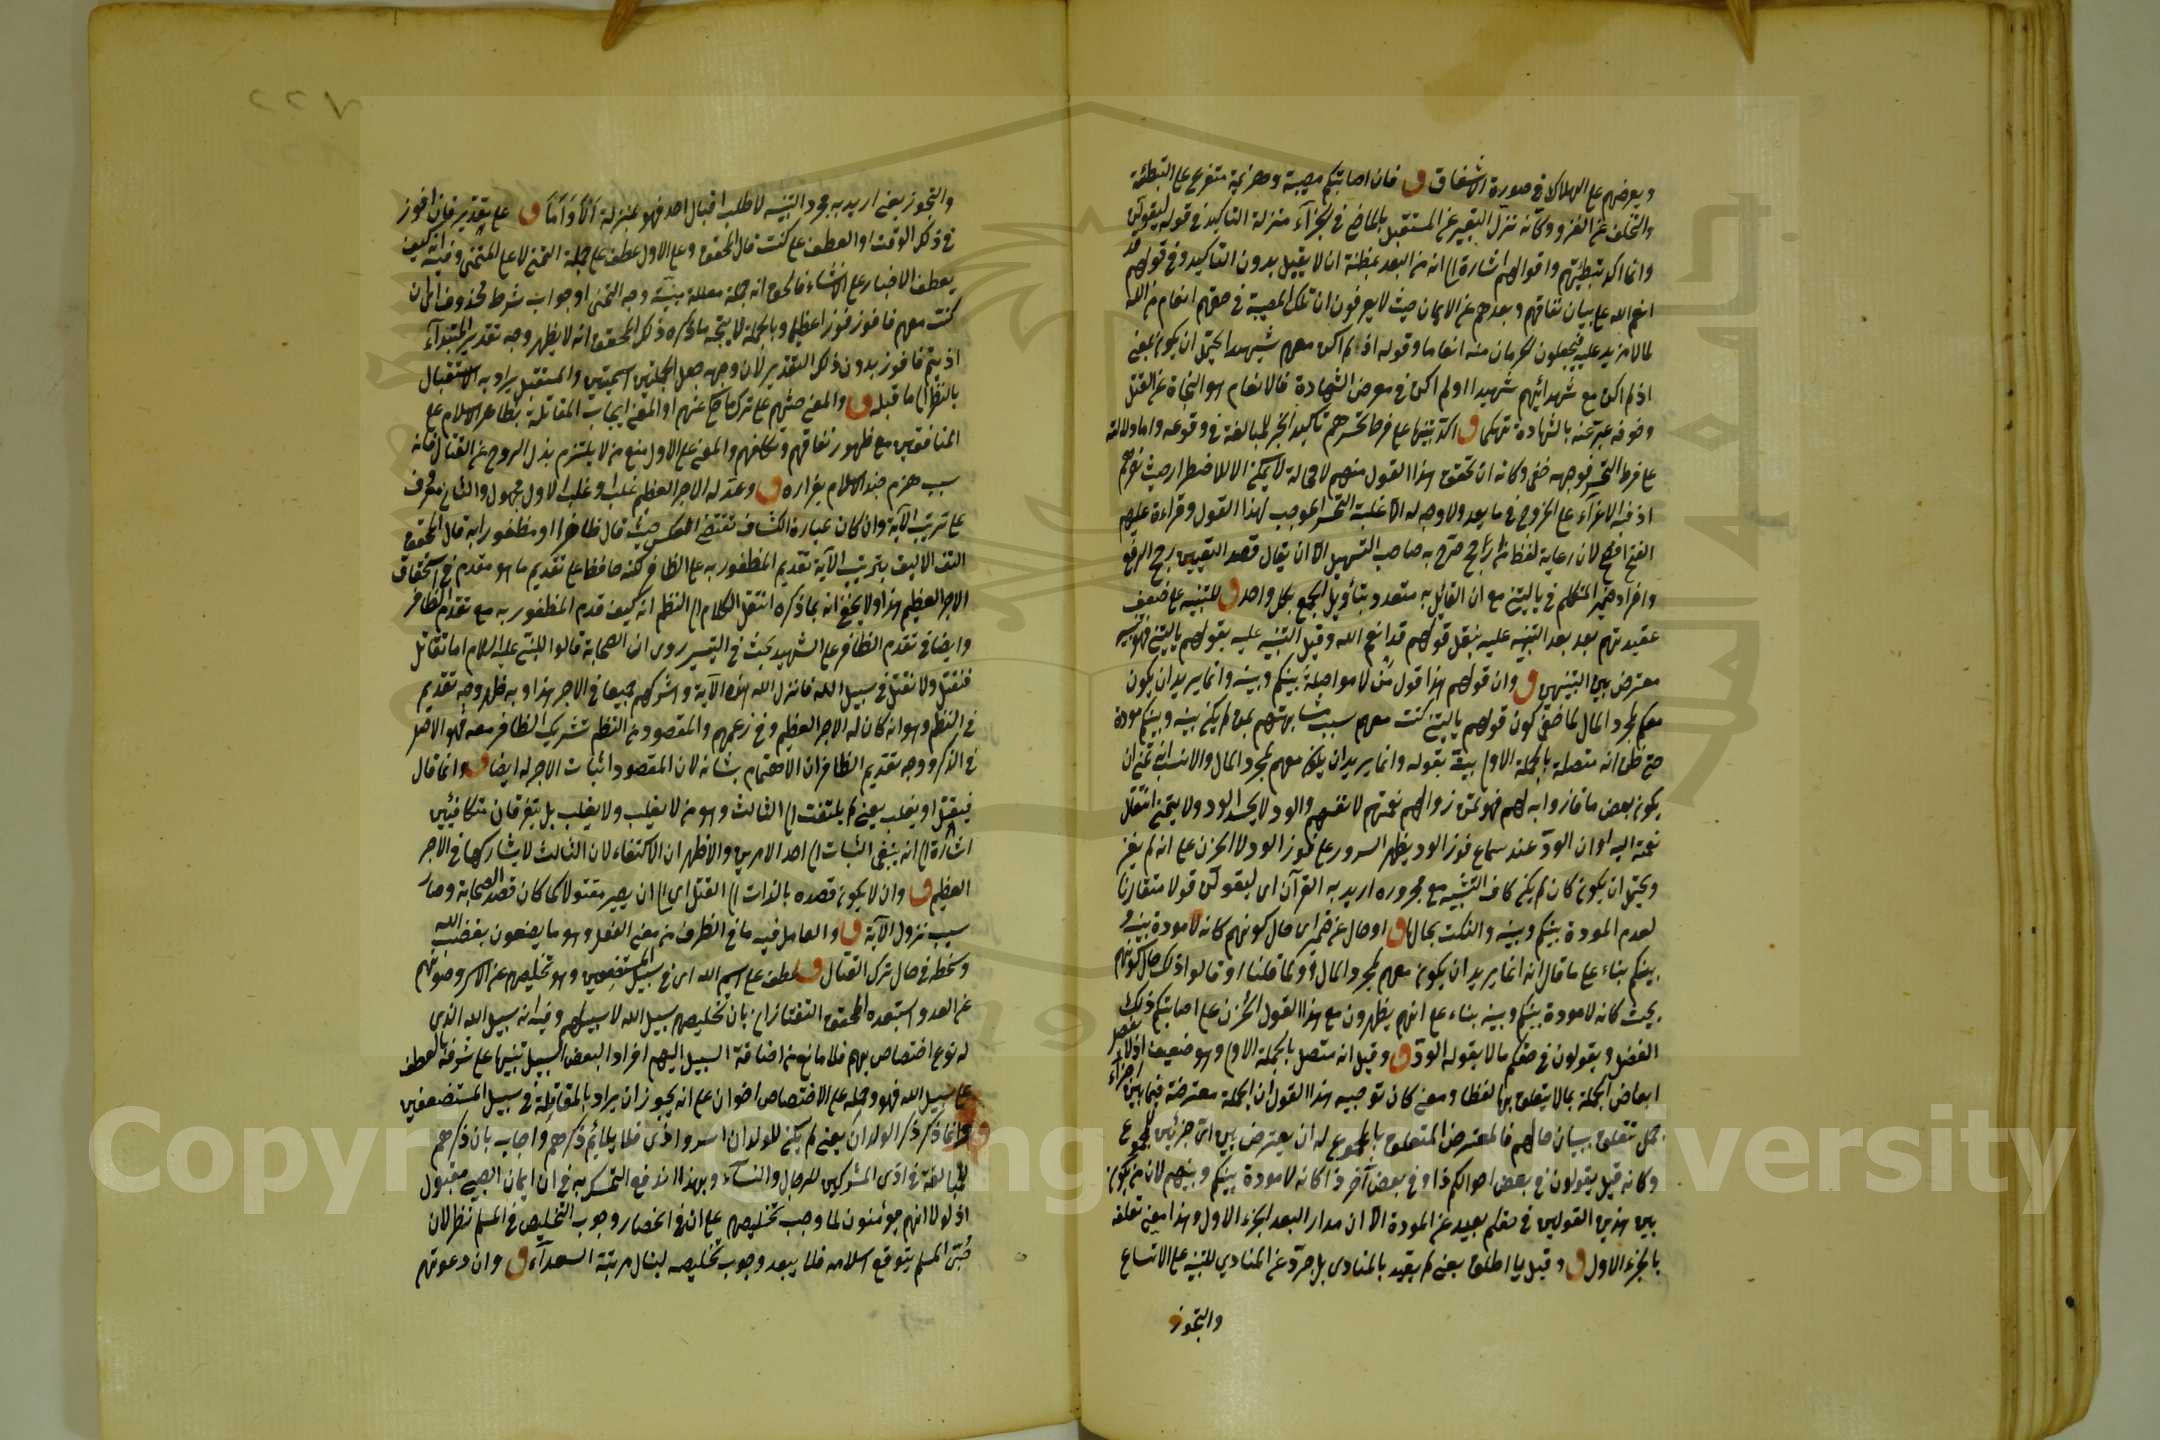 ويعرضهم على الهلاك في صورة الاشفاق ق فان اصابتكم مصيبة وهزيمة متفرع على التبطئة
والتخلف عن الغزو وكأنه نزل التعبير عن المستقبل بالماضي في الجزاء منزلة التاكيد في قوله ليقولن
وانما اكد تبطئتهم واقوالهم اشارة الى انه من البعد بمظنة ان لا يقبل بدون التاكيد وفي قولهم قد
انعم الله علي بيان نفاقهم وبعدهم عن الايمان حيث لا يعرفون ان تلك المصيبة في حقهم انعام من الله
لما لا مزيد عليه فيجعلون الحرمان منه انعاما وقوله اذ لم اكن معهم شهيدا يحتمل ان يكون بمعنى
اذ لم اكن مع شهدائهم شهيدا او لم اكن في معرض الشهادة فالانعام هو النجاة عن القتل
وخوفه عبر عنه بالشهادة تهكما ق اكده تنبيها على فرط تحسرهم تاكيد الخبر للمبالغة في وقوعه واما دلالته
على فرط التحسر فوجهه خفي وكانه ان تحقق هذا القول منهم لا محالة لا يمكن الا للاضطرار حيث
اذ فيه الاغراء على الخروج في ما بعد ولا وجه له الا غلبة التحسر الموجب لهذا القول وقراءة
الفتح افصح لان رعاية لفظ من ارجح صرح به صاحب التسهيل الا ان يقال قصد التعيين رجح الرفع
وافراد ضمير المتكلم في يا ليتني مع ان القائل به متعدد بتأويل الجمع بكل واحد ق للتنبيه على ضعف
عقيدتهم بعد بعد التنبيه عليه بنقل قولهم قد انعم الله وقبل التنبيه عليه بقولهم يا ليتني فهو
معترض بين التنبيهين ق وان قولهم هذا قول من لا مواصلة بينكم وبينه وانما يريد ان يكون
معكم لمجرد المال لما خفي كون قولهم يا ليتني كنت معهم سبب مشابهتهم بمن لم يكن بينه وبينكم مودة
حتى ظن انه متصلة بالجملة الاولى بينه بقوله وانما يريد ان يكون معهم لمجرد المال والانسان تمنى ان
يكون بعض ما فازوا به لهم فهو تمني زوال نعمتهم لا نفسهم والود لا يحسد الود ولا يتمنى انتقال
نعمة اليه او ان الود عند سماع فوز الود يظهر السرور على فوز الود لا الحزن على انه لم يفز
ويحتمل ان يكون كان لم يكن كاف التشبيه مع مجروره اريد به القرآن اى ليقولن قولا متقارنا
لعدم المودة بينكم وبينه والنكت بحالها ق او حال عن ضمير اى حال كونهم كانه لا مودة بينه و
بينكم بناء على ما قال انه انما يريد ان يكون معهم لمجرد المال او كما قلنا او قالوا ذلك حال كونهم
بحيث كانه لا مودة بينكم وبينه بناء على انهم يظهرون مع هذا القول الحزن على اصابتكم ذلك
الفضل ويقولون في حقكم ما لا يقوله الود ق وقيل انه متصل بالجملة الاولى وهو ضعيف اذ لا يفصل
ابعاض الجملة بما لا يتعلق بها لفظا ومعنى كان توجيه هذا القول ان الجملة معترضة فيما بين اجزاء
جمل تتعلق ببيان حالهم فالمعترض المتعلق بالمجموع له ان يعترض بين اى جزئين للمجموع
وكانه قيل يقولون في بعض احوالكم ذا وفي بعض آخر ذا كانه لا مودة بينكم وبينهم لان من يكون
بين هذين القولين في حقكم بعيد عن المودة الا ان مدار البعد الجزء الاول وهذا معنى تعلقه
بالجزء الاول ق وقيل يا اطلق يعني لم يقيد بالمنادى بل جرد عن المنادي للتنبيه على الاتساع
والتجوز
والتجوز يعني اريد به مجرد التنبيه لا طلب اقبال احد فهو بمنزلة الا واما ق على تقدير فانا افوز
في ذلك الوقت او العطف على كنت قال المحقق وعلى الاول عطف على جملة التمني لا على المتمنى وفيه انه كيف
يعطف الاخبار على الانشاء فالحق انه جملة معللة مبينة وجه التمني او جواب شرط محذوف اى ان
كنت معهم فافوز فوزا عظيما وبالجملة لا يتجه ما ذكره ذلك المحقق انه لا يظهر وجه تقدير المبتدأ
اذ يتم فافوز بدون ذلك التقدير لان وجهه جعل الجملتين اسميتين والمستقبل يراد به الاستقبال
بالنظر الى ما قبله ق والمعنى حثهم على ترك ما حكى عنهم او المعنى ايجاب المقاتلة بظاهر الاسلام على
المنافقين مع ظهور نفاقهم وتكلفهم والمعنى على الاول منع من لا يلتزم بذل الروح عن القتال فانه
سبب هزم جند الاسلام بفراره ق وعد له الاجر العظيم غلب او غلب الاول مجهول والثاني معروف
على ترتيب الآية وان كان عبارة الكشاف تقتضي العكس حيث قال ظافرا او مظفورا به قال المحقق
التف الاليق بترتيب الآية تقديم المظفور به على الظافر لكنه حافظا على تقديم ما هو مقدم في استحقاق
الاجر العظيم هذا ولا يخفى انه بما ذكره انتقل الكلام الى النظم انه كيف قدم المظفور به مع تقدم الظافر
وايضا في تقدم الظافر على الشهيد بحث في التيسير روى ان الصحابة قالوا للنبي عليه السلام اما نقاتل
فنقتل ولا نقتل في سبيل الله فانزل الله هذه الآية واشركهم جميعا في الاجر هذا وبه ظهر وجه تقديم
في النظم وهو انه كان له الاجر العظيم في زعمهم والمقصود من النظم تشريك الظافر معه فهو الاصل
في الذكر ووجه تقديم الظافر ان الاهتمام بشانه لان المقصود اثبات الاجر له ايضا ق وانما قال
فيقتل او يغلب يعني لم يلتفت الى الثالث وهو من لا يغلب ولا يغلب بل يتفرقان متكافئين
اشارة الى انه ينبغي الثبات الى احد الامرين والاظهر ان الاكتفاء لان الثالث لا يشاركها في الاجر
العظيم ق وان لا يكون قصده بالذات الى القتل اى الى ان يصير مقتولا كما كان قصد الصحابة وصار
سبب نزول الآية ق والعامل فيه ما في الظرف من معنى الفعل وهو ما يصنعون بغضب الله
وسخطه في حال ترك القتال ق عطف على اسم الله اى في سبيل المستضعفين وهو تخليصهم عن الاسر وصونهم
عن العدو استبعده المحقق التفتازاني بان تخليصهم سبيل الله لا سبيلهم وفيه انه سبيل الله الذي
له نوع اختصاص بهم فلا مانع من اضافة السبيل اليهم افرادا لبعض السبيل تنبيها على شرفه بالعطف
على سبيل الله فهو وحمله على الاختصاص اخوان على انه يجوز ان يراد بالمقاتلة في سبيل المستضعفين
ق وانما ذكر ذكر الولدان يعني لم يكن للولدان اسر واذى فلا يلائم ذكرهم واجاب بان ذكرهم
للمبالغة في اذى المشركين للرجال والنساء وبهذا اندفع التمسك به في ان ايمان الصبي مقبول
اذ لولا انهم مؤمنون لما وجب تخليصهم على ان في انحصار وجوب التخليص في المسلم نظر لان
صبي المسلم يتوقع اسلامه فلا يبعد وجوب تخليصه لينال مرتبة السعداء ق وان دعوتهم
Copyright © King Saud University